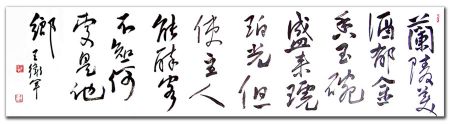 蘭陵美
酒郁金
香玉碗
盛來琥
珀光但
使主人
能醉客
不知何
處是他
鄉